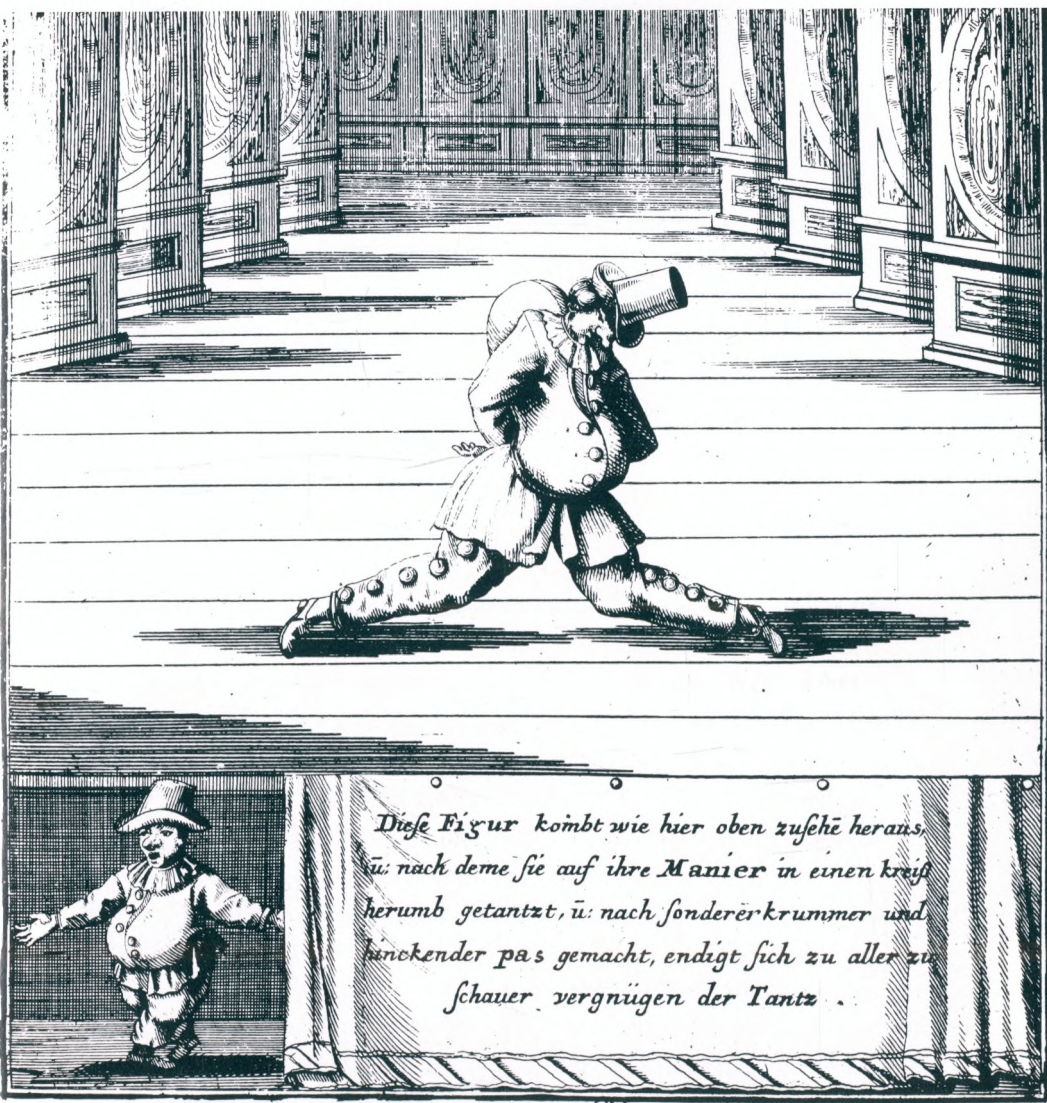 Dieſe Figur kom̄bt wie hier oben zuſehē heraus,
ū: nach deme ſie auf ihre Manier in einen kreiß
herumb getantzt, ū: nach ſonderer krummer und
hinckender pas gemacht, endigt ſich zu aller zu
ſchauer vergnügen der Tantz .